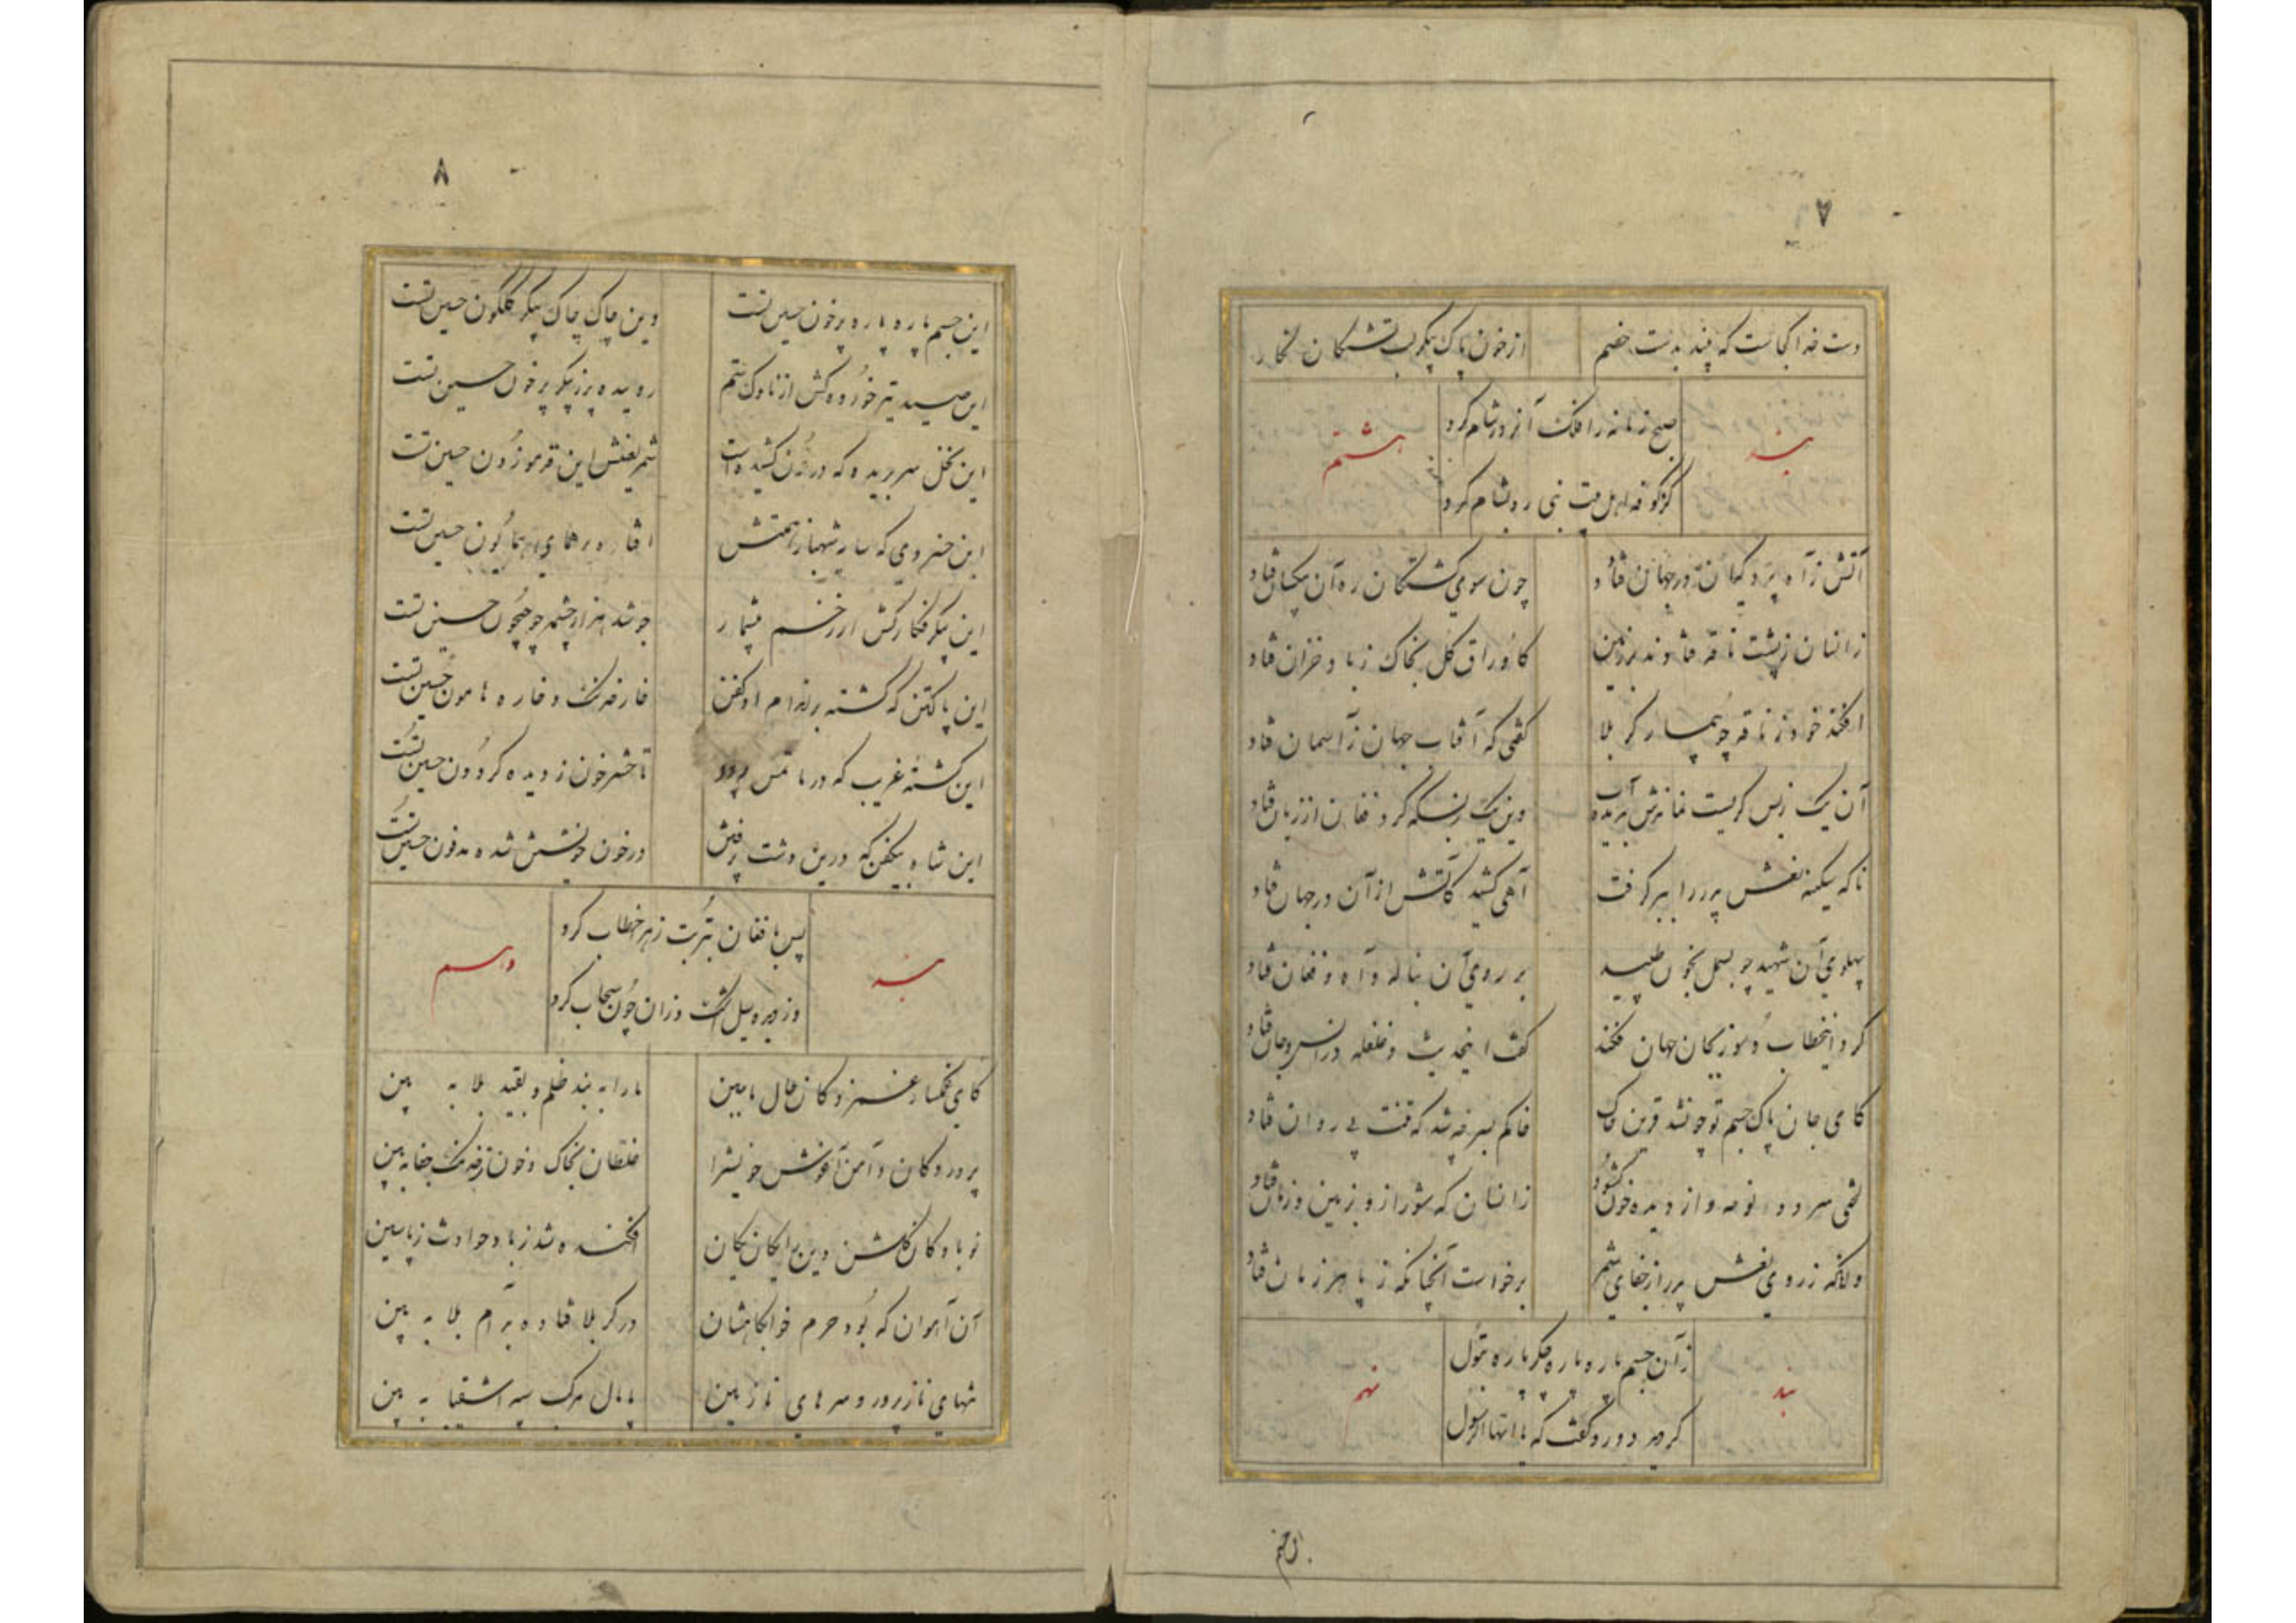 ۷
دست خدا کجاست که بیند بدست خصم از خون پاک پیکر لب تشنگان نگار
بند هشتم
صبح زمانه را فلک آنروز شام کرد
کز کوفه اهل بیت نبی رو بشام کرد
آتش ز آه پردگیان در جهان فتاد چون سوی کشتگان ره آن بیکسان فتاد
زانسان ز پشت ناقه فتادند بر زمین کاوراق گل بخاک ز باد خزان فتاد
افکند خود ز ناقه چو بیمار کربلا گفتی که آفتاب جهان ز آسمان فتاد
آن یک ز بس گریست نمانیش بدیده آب وین یک ز بسکه کرد فغان از زبان فتاد
ناگه سکینه نعش پدر را ببر گرفت آهی کشید کآتش از آن در جهان فتاد
پهلوی آن شهید چو بسمل بخون طپید بر روی آن بناله و آه و فغان فتاد
کرد اینخطاب و سوز بکان جهان فکند گفت اینحدیث و غلغله در انس و جان فتاد
کای جان پاک جسم تو چون شد قرین خاک خاکم بسر چه شد که تنت بی روان فتاد
لختی سرود نوحه و از دیده خون گشود زانسان که شور ازو بزمین و زمان فتاد
وانگه ز روی نعش پدر از جفای شمر برخواست آنچنانکه ز پا هر زمان فتاد
بند نهم
زآن جسم پاره پاره جگر پاره بتول
کرد درود و گفت که یا ایها الرسول
این جسم
۸
این جسم پاره پاره پر خون حسین تست وین چاک چاک پیکر گلگون حسین تست
این صید تیر خورده کش از ناوک ستم روییده پر ز پیکر پر خون حسین تست
این نخل سر بریده که در خون کشیده است شمر لعینش این قد موزون حسین تست
این خسروی که سایه شهباز همتش افتاده بر همای همایون حسین تست
این پیکر فکار کش از زخم بیشمار جوشد هزار چشمه چو جیحون حسین تست
این پاکتن که گشته بر اندام او کفن خار خدنگ و خاره هامون حسین تست
این کشته غریب که در ماتمش بود تا حشر خون ز دیده گردون حسین تست
این شاه بیکفن که درین دشت پر فتن در خون خویشتن شده مدفون حسین تست
بند دهم
پس با فغان بتربت زهرا خطاب کرد
وز دیده سیل اشک روان چون سحاب کرد
کای غمگسار غمزدگان حال ما ببین ما را به بند ظلم و بقید بلا به بین
پروردگان دامن و آغوش خویشرا غلطان بخاک و خون ز خدنگ جفا به بین
نوباوگان گلشن دین را یکان یکان افکنده شد ز باد حوادث ز پا ببین
آن آهوان که بود حرم خوابگاهشان در کربلا فتاده به دام بلا به بین
تنهای ناز پرور و سرهای نازنین پامال مرکب سپه اشقیا به بین